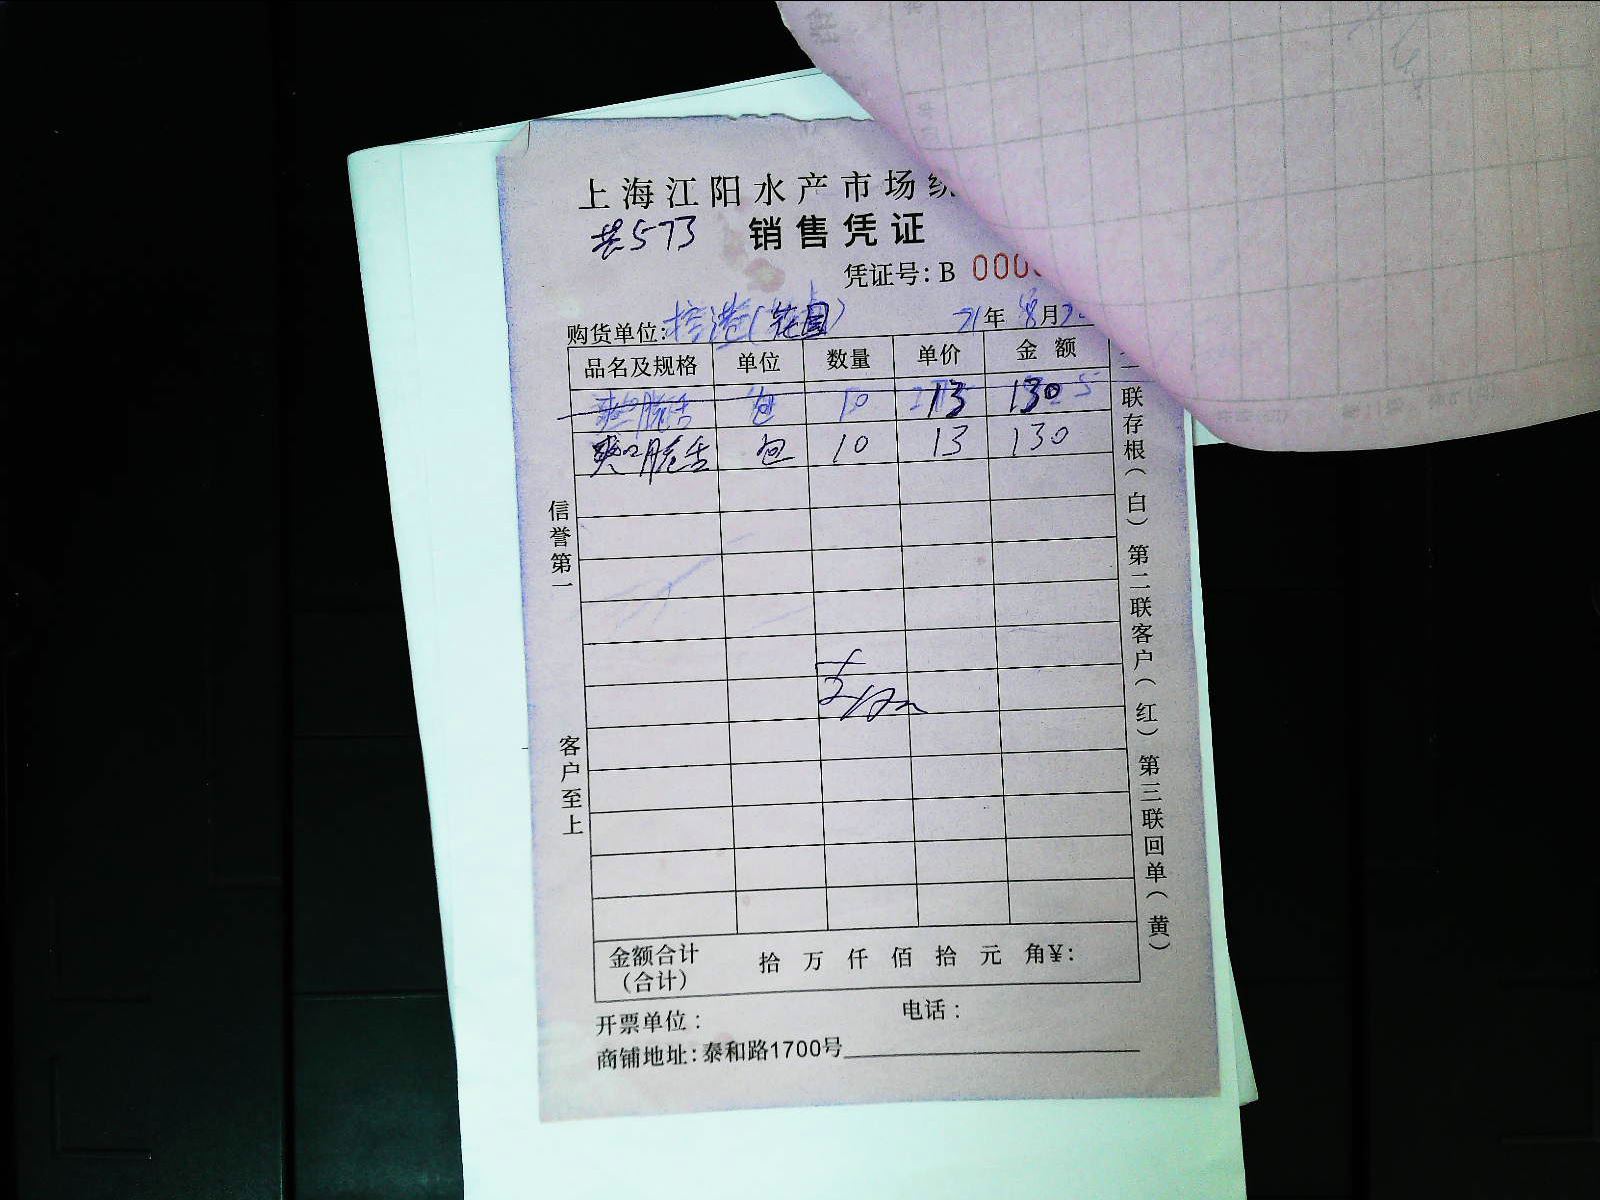 上海江阳水产市场
共573 销售凭证
凭证号：B 000
购货单位：控港（花园） 21年 8月
品名及规格 单位 数量 单价 金额
爽口脆舌 包 10 13 130
爽口脆舌 包 10 13 130
信誉第一
客户至上
联存根（白） 第二联客户（红） 第三联回单（黄）
金额合计（合计） 拾 万 仟 佰 拾 元 角¥：
开票单位： 电话：
商铺地址：泰和路1700号